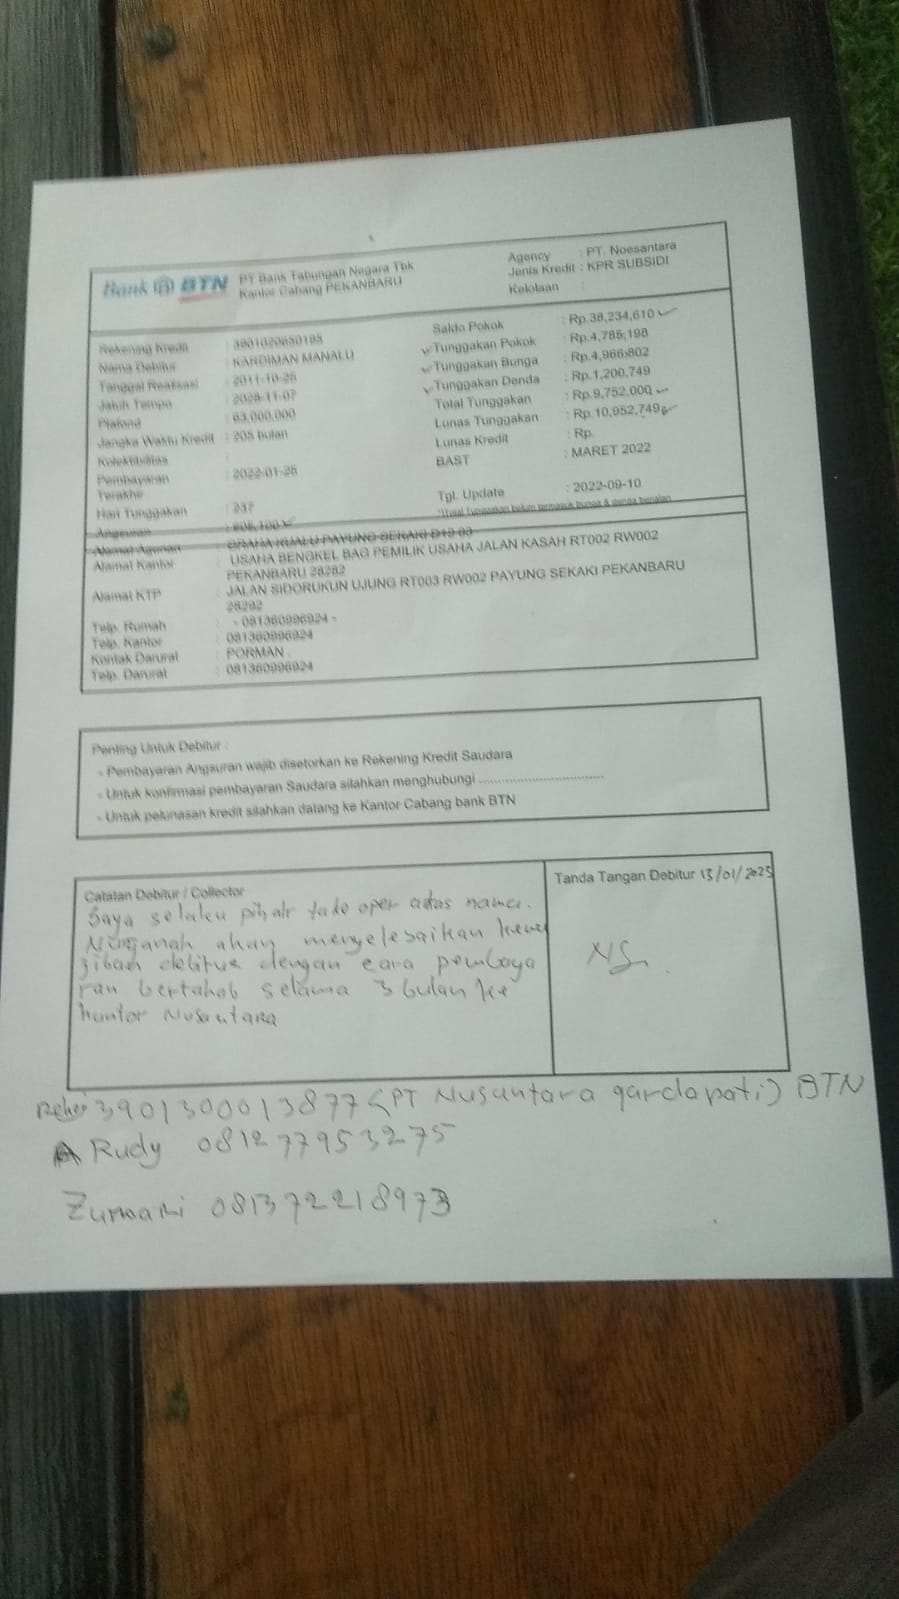 Bank BTN PT Bank Tabungan Negara Tbk
Kantor Cabang PEKANBARU
Agency : PT. Noesantara
Jenis Kredit : KPR SUBSIDI
Kelolaan :
Rekening Kredit
Nama Debitur : KARDIMAN MANALU
Tanggal Realisasi : 2011-10-25
Jatuh Tempo
Plafond : 63,000,000
Jangka Waktu Kredit : 205 bulan
Kolektibilitas :
Pembayaran Terakhir : 2022-01-25
Hari Tunggakan : 237
Angsuran
Saldo Pokok : Rp.38,234,610
Tunggakan Pokok : Rp.4,785,198
Tunggakan Bunga : Rp.4,966,802
Tunggakan Denda : Rp.1,200,749
Total Tunggakan : Rp.9,752,000
Lunas Tunggakan : Rp.10,952,749
Lunas Kredit : Rp.
BAST : MARET 2022
Tgl. Update : 2022-09-10
*)Total Tunggakan belum termasuk bunga & denda berjalan
Alamat Agunan : GRAHA KUALU PAYUNG SEKAKI
Alamat Kantor : USAHA BENGKEL BAG PEMILIK USAHA JALAN KASAH RT002 RW002
PEKANBARU 28282
Alamat KTP : JALAN SIDORUKUN UJUNG RT003 RW002 PAYUNG SEKAKI PEKANBARU
28292
Telp. Rumah : - 081360996924 -
Telp. Kantor : 081360996924
Kontak Darurat : PORMAN
Telp. Darurat : 081360996924
Penting Untuk Debitur :
- Pembayaran Angsuran wajib disetorkan ke Rekening Kredit Saudara
- Untuk konfirmasi pembayaran Saudara silahkan menghubungi ................................
- Untuk pelunasan kredit silahkan datang ke Kantor Cabang bank BTN
Catatan Debitur / Collector
Saya selaku pihak take oper atas nama.
akan menyelesaikan kewa
jiban debitur dengan cara pembaya
ran bertahab selama 3 bulan ke
kantor Nusantara
Tanda Tangan Debitur 13/01/2023
NS.
3901300013877 (PT Nusantara gardapati) BTN
Rudy 081277953275
081372218973